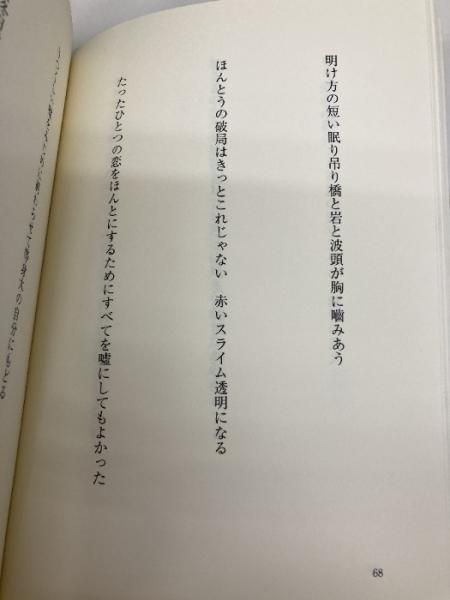 明け方の短い眠り吊り橋と岩と波頭が胸に嚙みあう
ほんとうの破局はきっとこれじゃない　赤いスライム透明になる
たったひとつの恋をほんとにするためにすべてを嘘にしてもよかった
身大の自分にもどる
68